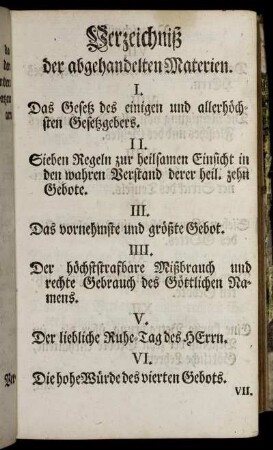 Verzeichniß
der abgehandelten Materien.
I.
Das Gesetz des einigen und allerhöch-
sten Gesetzgebers.
II.
Sieben Regeln zur heilsamen Einsicht in
den wahren Verstand derer heil. zehn
Gebote.
III.
Das vornehmste und größte Gebot.
IIII.
Der höchststrafbare Mißbrauch und
rechte Gebrauch des Göttlichen Na-
mens.
V.
Der liebliche Ruhe-Tag des HErrn.
VI.
Die hohe Würde des vierten Gebots.
VII.